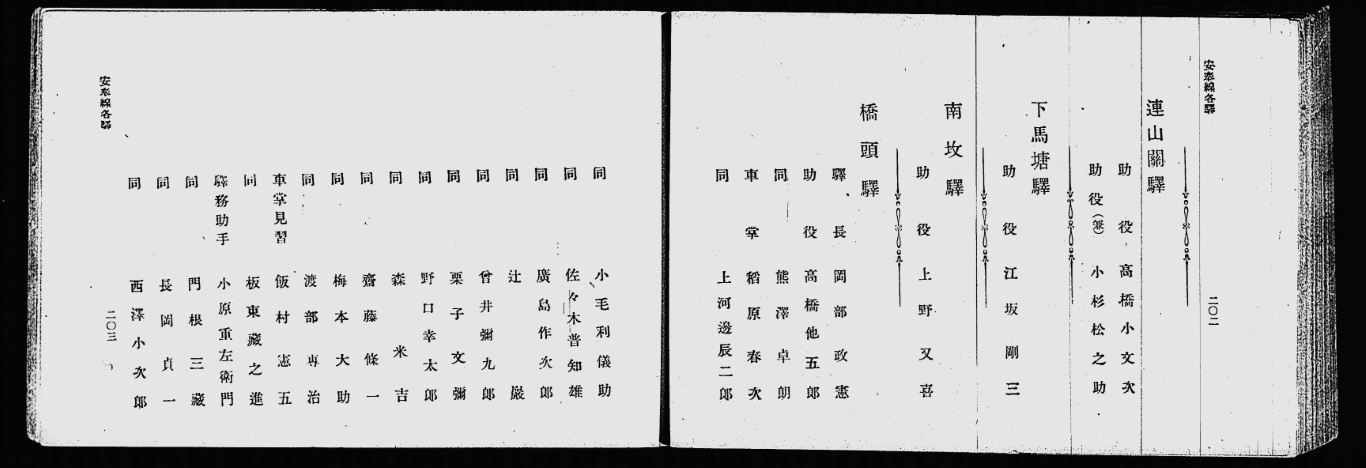 安奉線各驛
連山關驛
助役 高橋小文次
助役(兼) 小杉松之助
下馬塘驛
助役 江坂剛三
南坟驛
助役 上野又喜
橋頭驛
驛長 岡部政憲
助役 高橋他五郎
同 熊澤卓朗
車掌 稻原春次
同 上河邊辰二郎
二〇二
同 小毛利儀助
同 佐々木普知雄
同 廣島作次郎
同 辻巖
同 曾井彌九郎
同 栗子文彌
同 野口幸太郎
同 森米吉
同 齋藤條一
同 梅本大助
同 渡部専治
車掌見習 飯村憲五
同 板東藏之進
驛務助手 小原重左衛門
同 門根三藏
同 長岡貞一
同 西澤小次郎
安奉線各驛
二〇三